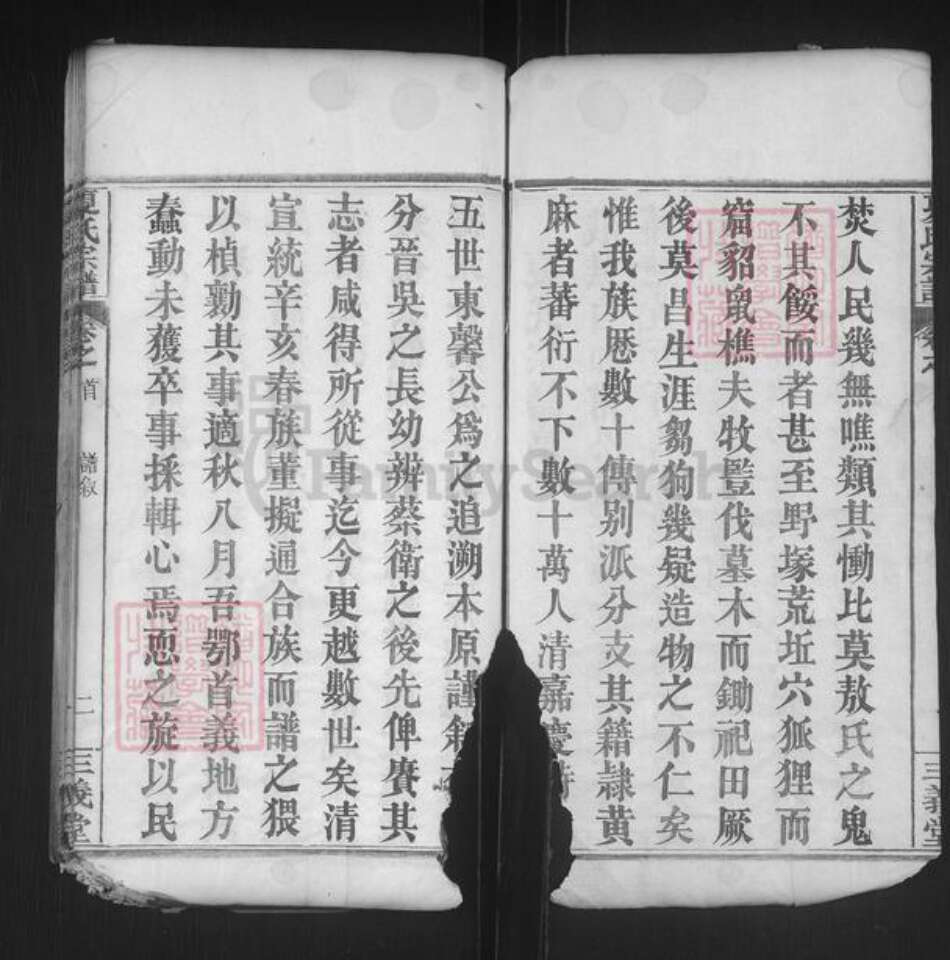 焚人民幾無噍類其慟比莫敖氏之鬼
不其餒而者甚至野塚荒坵穴狐狸而
窟貂鼠樵夫牧豎伐墓木而鋤祀田厥
後莫昌生涯芻狗幾疑造物之不仁矣
惟我族歷數十傳别派分支其籍隷黄
麻者蕃衍不下數十萬人清嘉慶時
五世東馨公爲之追溯本原謹
分晉吳之長幼辨蔡衛之後先俾賡其
志者咸得所從事迄今更越數世矣清
宣統辛亥春族董擬通合族而譜之猥
以楨勷其事適秋八月吾鄂首義地方
蠢動未獲卒事採輯心焉恧之旋以民
氏宗譜
卷之首
譜叙
二
三義堂
FamilySearch